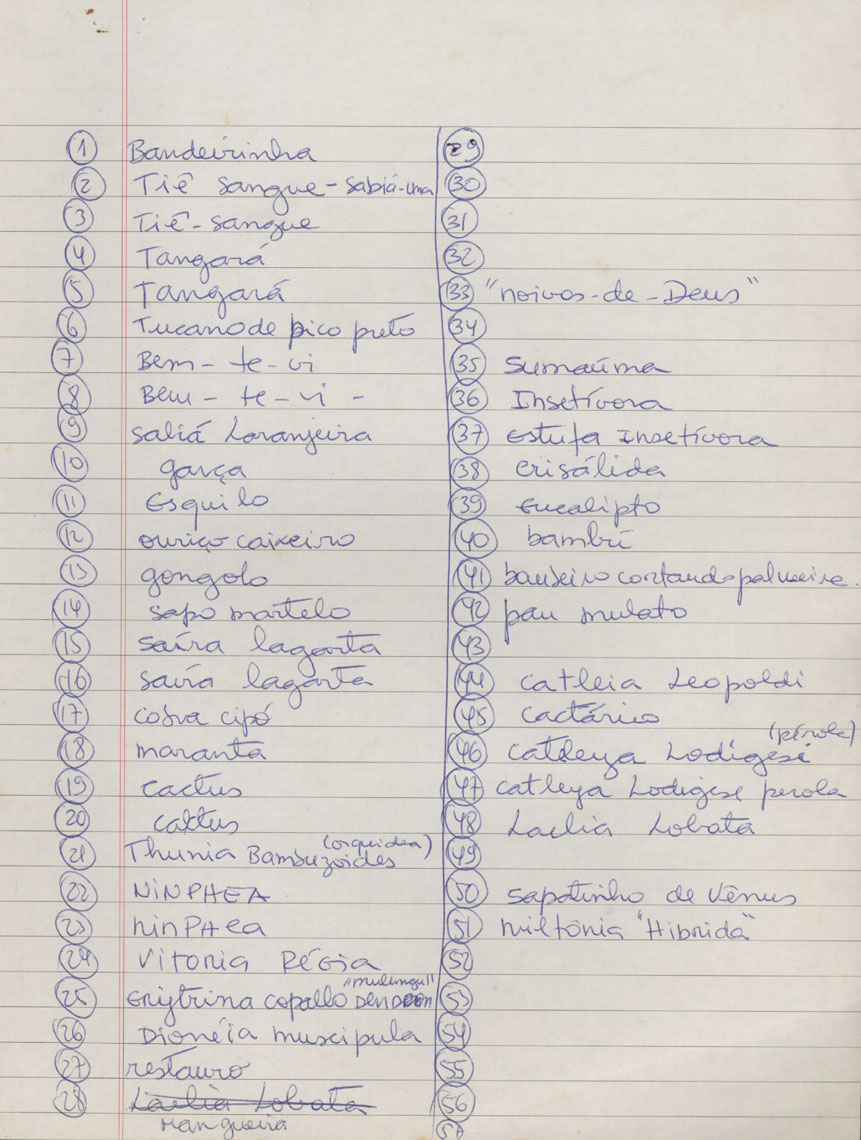 1 Bandeirinha
2 Tiê sangue - Sabiá-una
3 Tiê-sangue
4 Tangará
5 Tangará
6 Tucano de bico preto
7 Bem - te - vi
8 Bem - te - vi -
9 sabiá Laranjeira
10 garça
11 Esquilo
12 ouriço caixeiro
13 gongolo
14 sapo martelo
15 saíra lagarta
16 saíra lagarta
17 cobra cipó
18 maranta
19 cactus
20 cactus
(orquidea)
21 Thunia Bambuzoides
22 NINPHEA
23 NinPHea
24 Vitoria RÉGIA
"mulungu"
25 Eriytrina copallo DENDRON
26 Dionéia muscipula
27 restauro
28 Laelia Lobata
Mangueira
29
30
31
32
33 "noivos-de-Deus"
34
35 Sumaúma
36 Insetívora
37 Estufa Insetívora
38 crisálida
39 Eucalipto
40 bambú
41 cortando palmeira.
42 pau mulato
43
44 catleia Leopoldi
45 cactário
(pérola)
46 catleya Lodigesi
47 catleya Lodigese perola
48 Laelia Lobata
49
50 sapatinho de Vênus
51 miltônia "Hibrida"
52
53
54
55
56
57